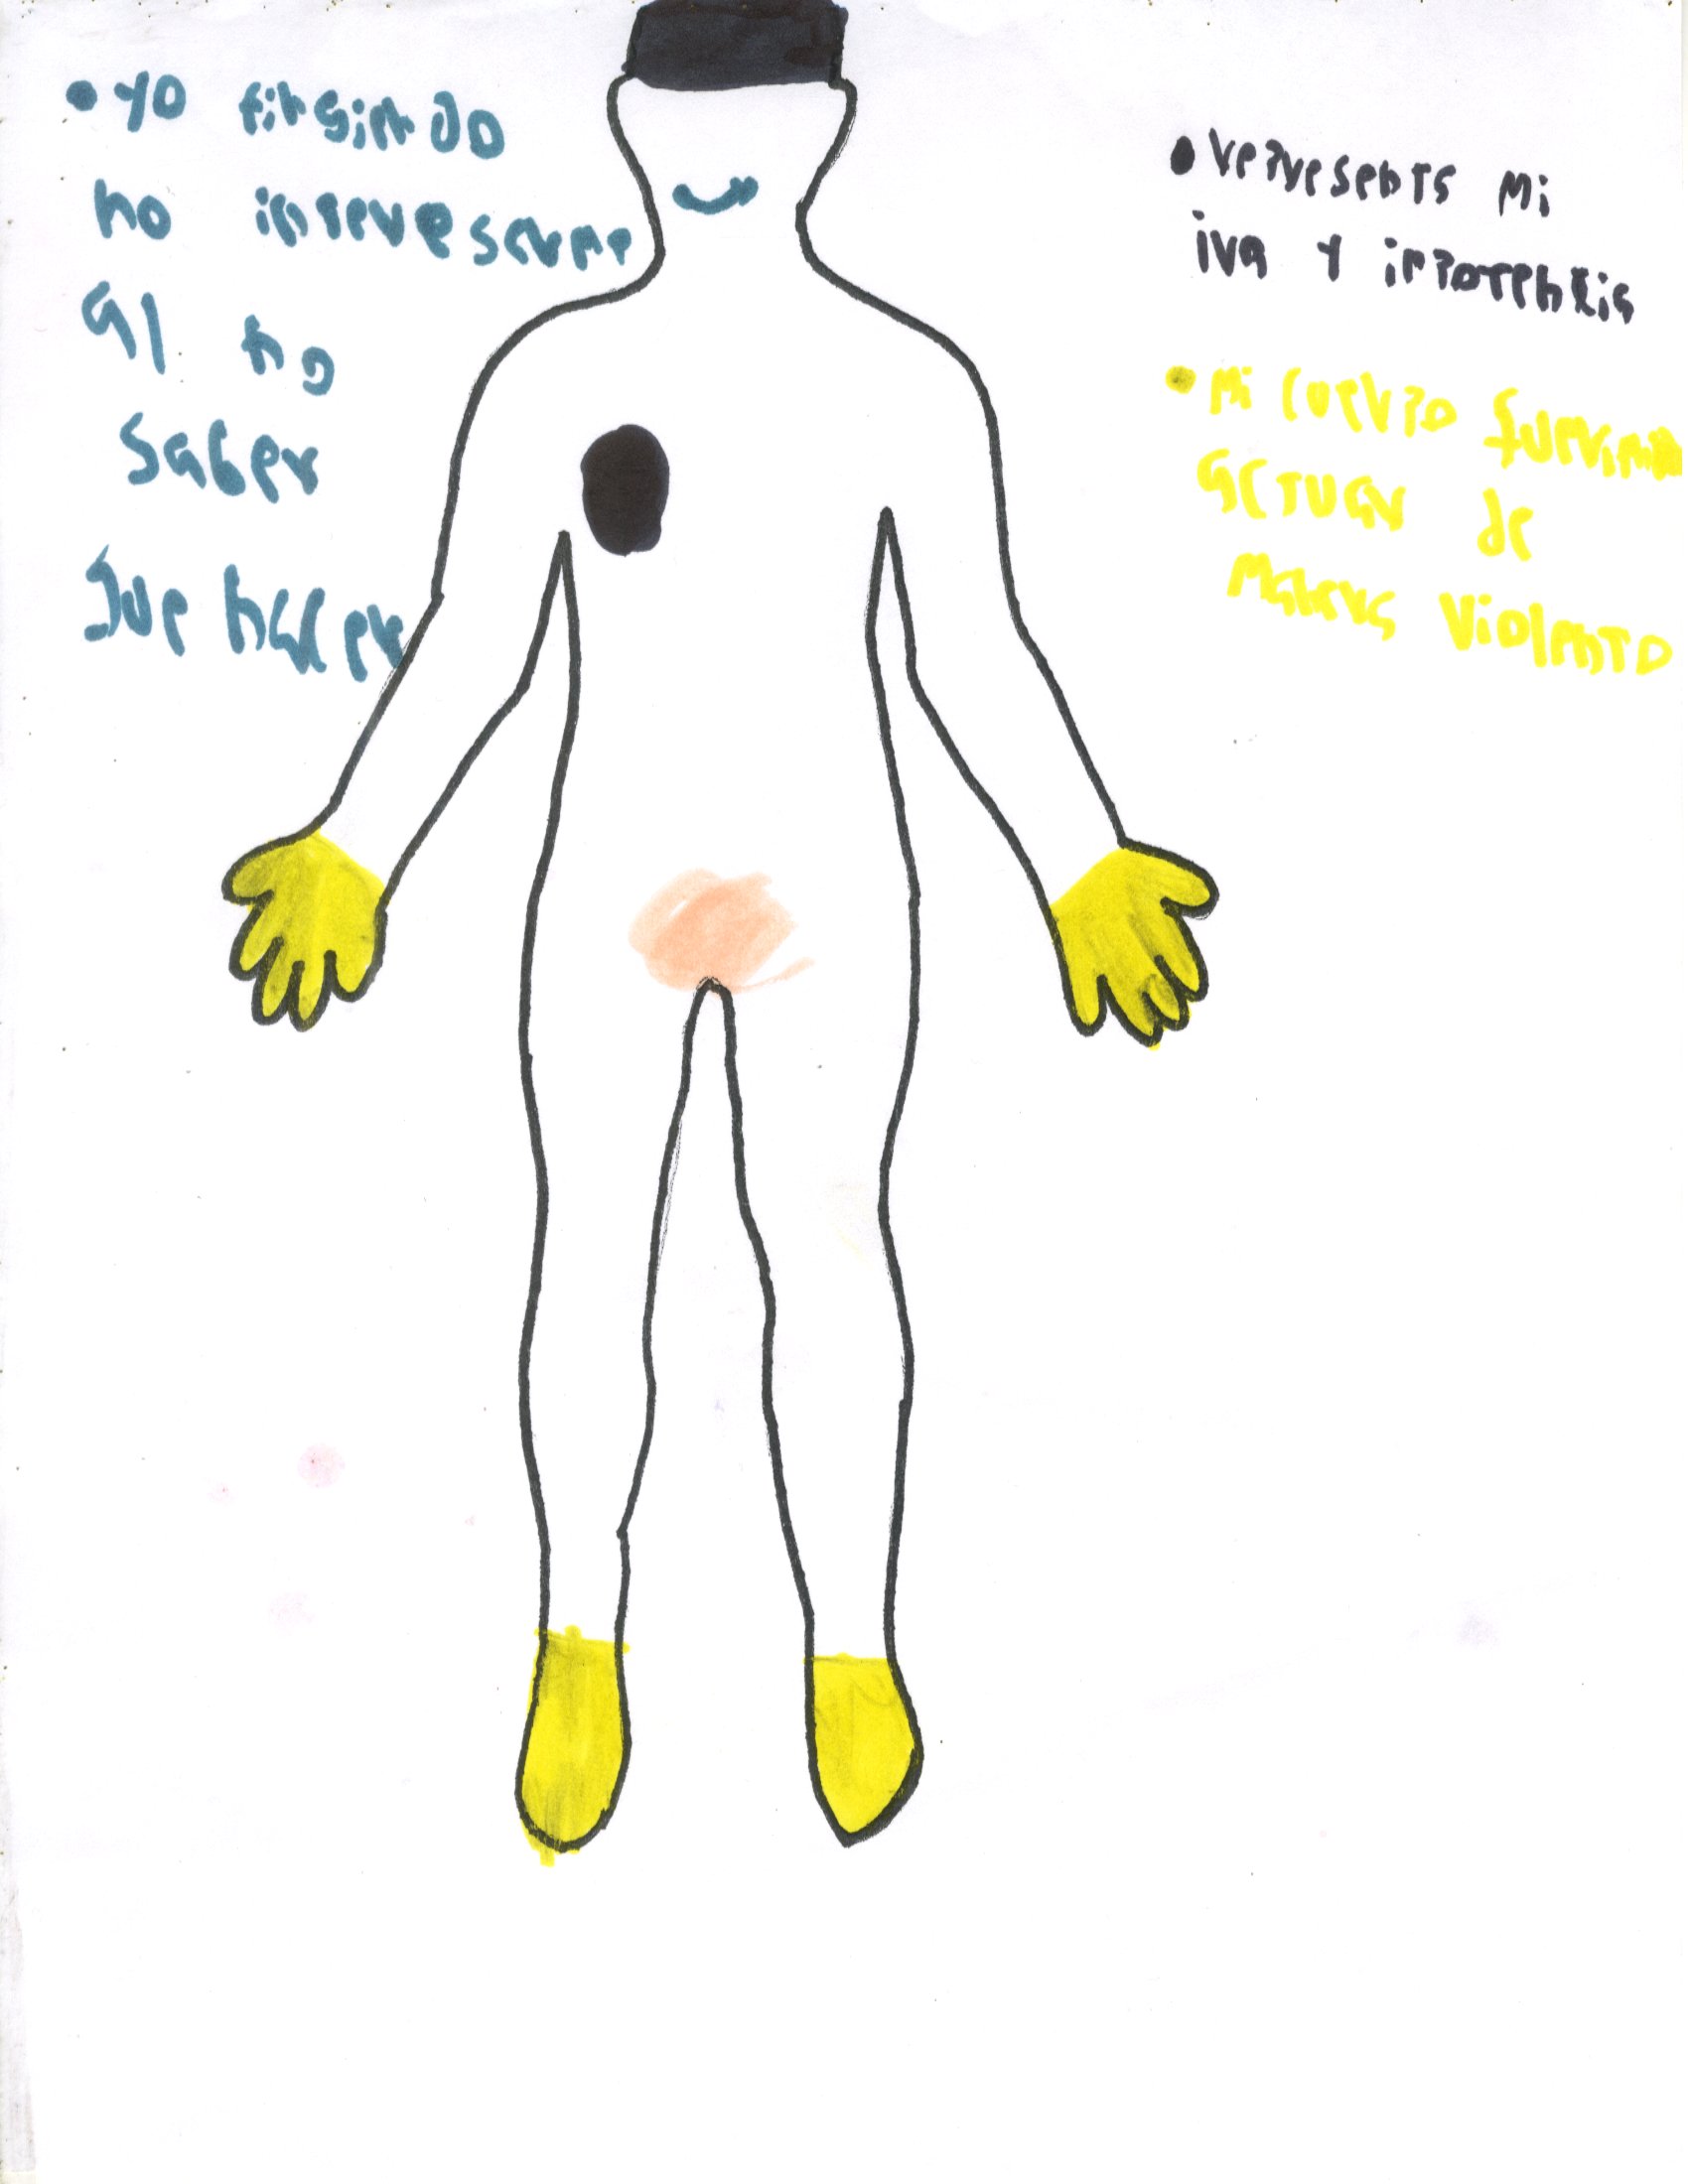 • yo fingindo
no interesarme
al no
saber
que hacer
• representa mi
ira y impotencia
• Mi cuerpo
actuar de
manera violento